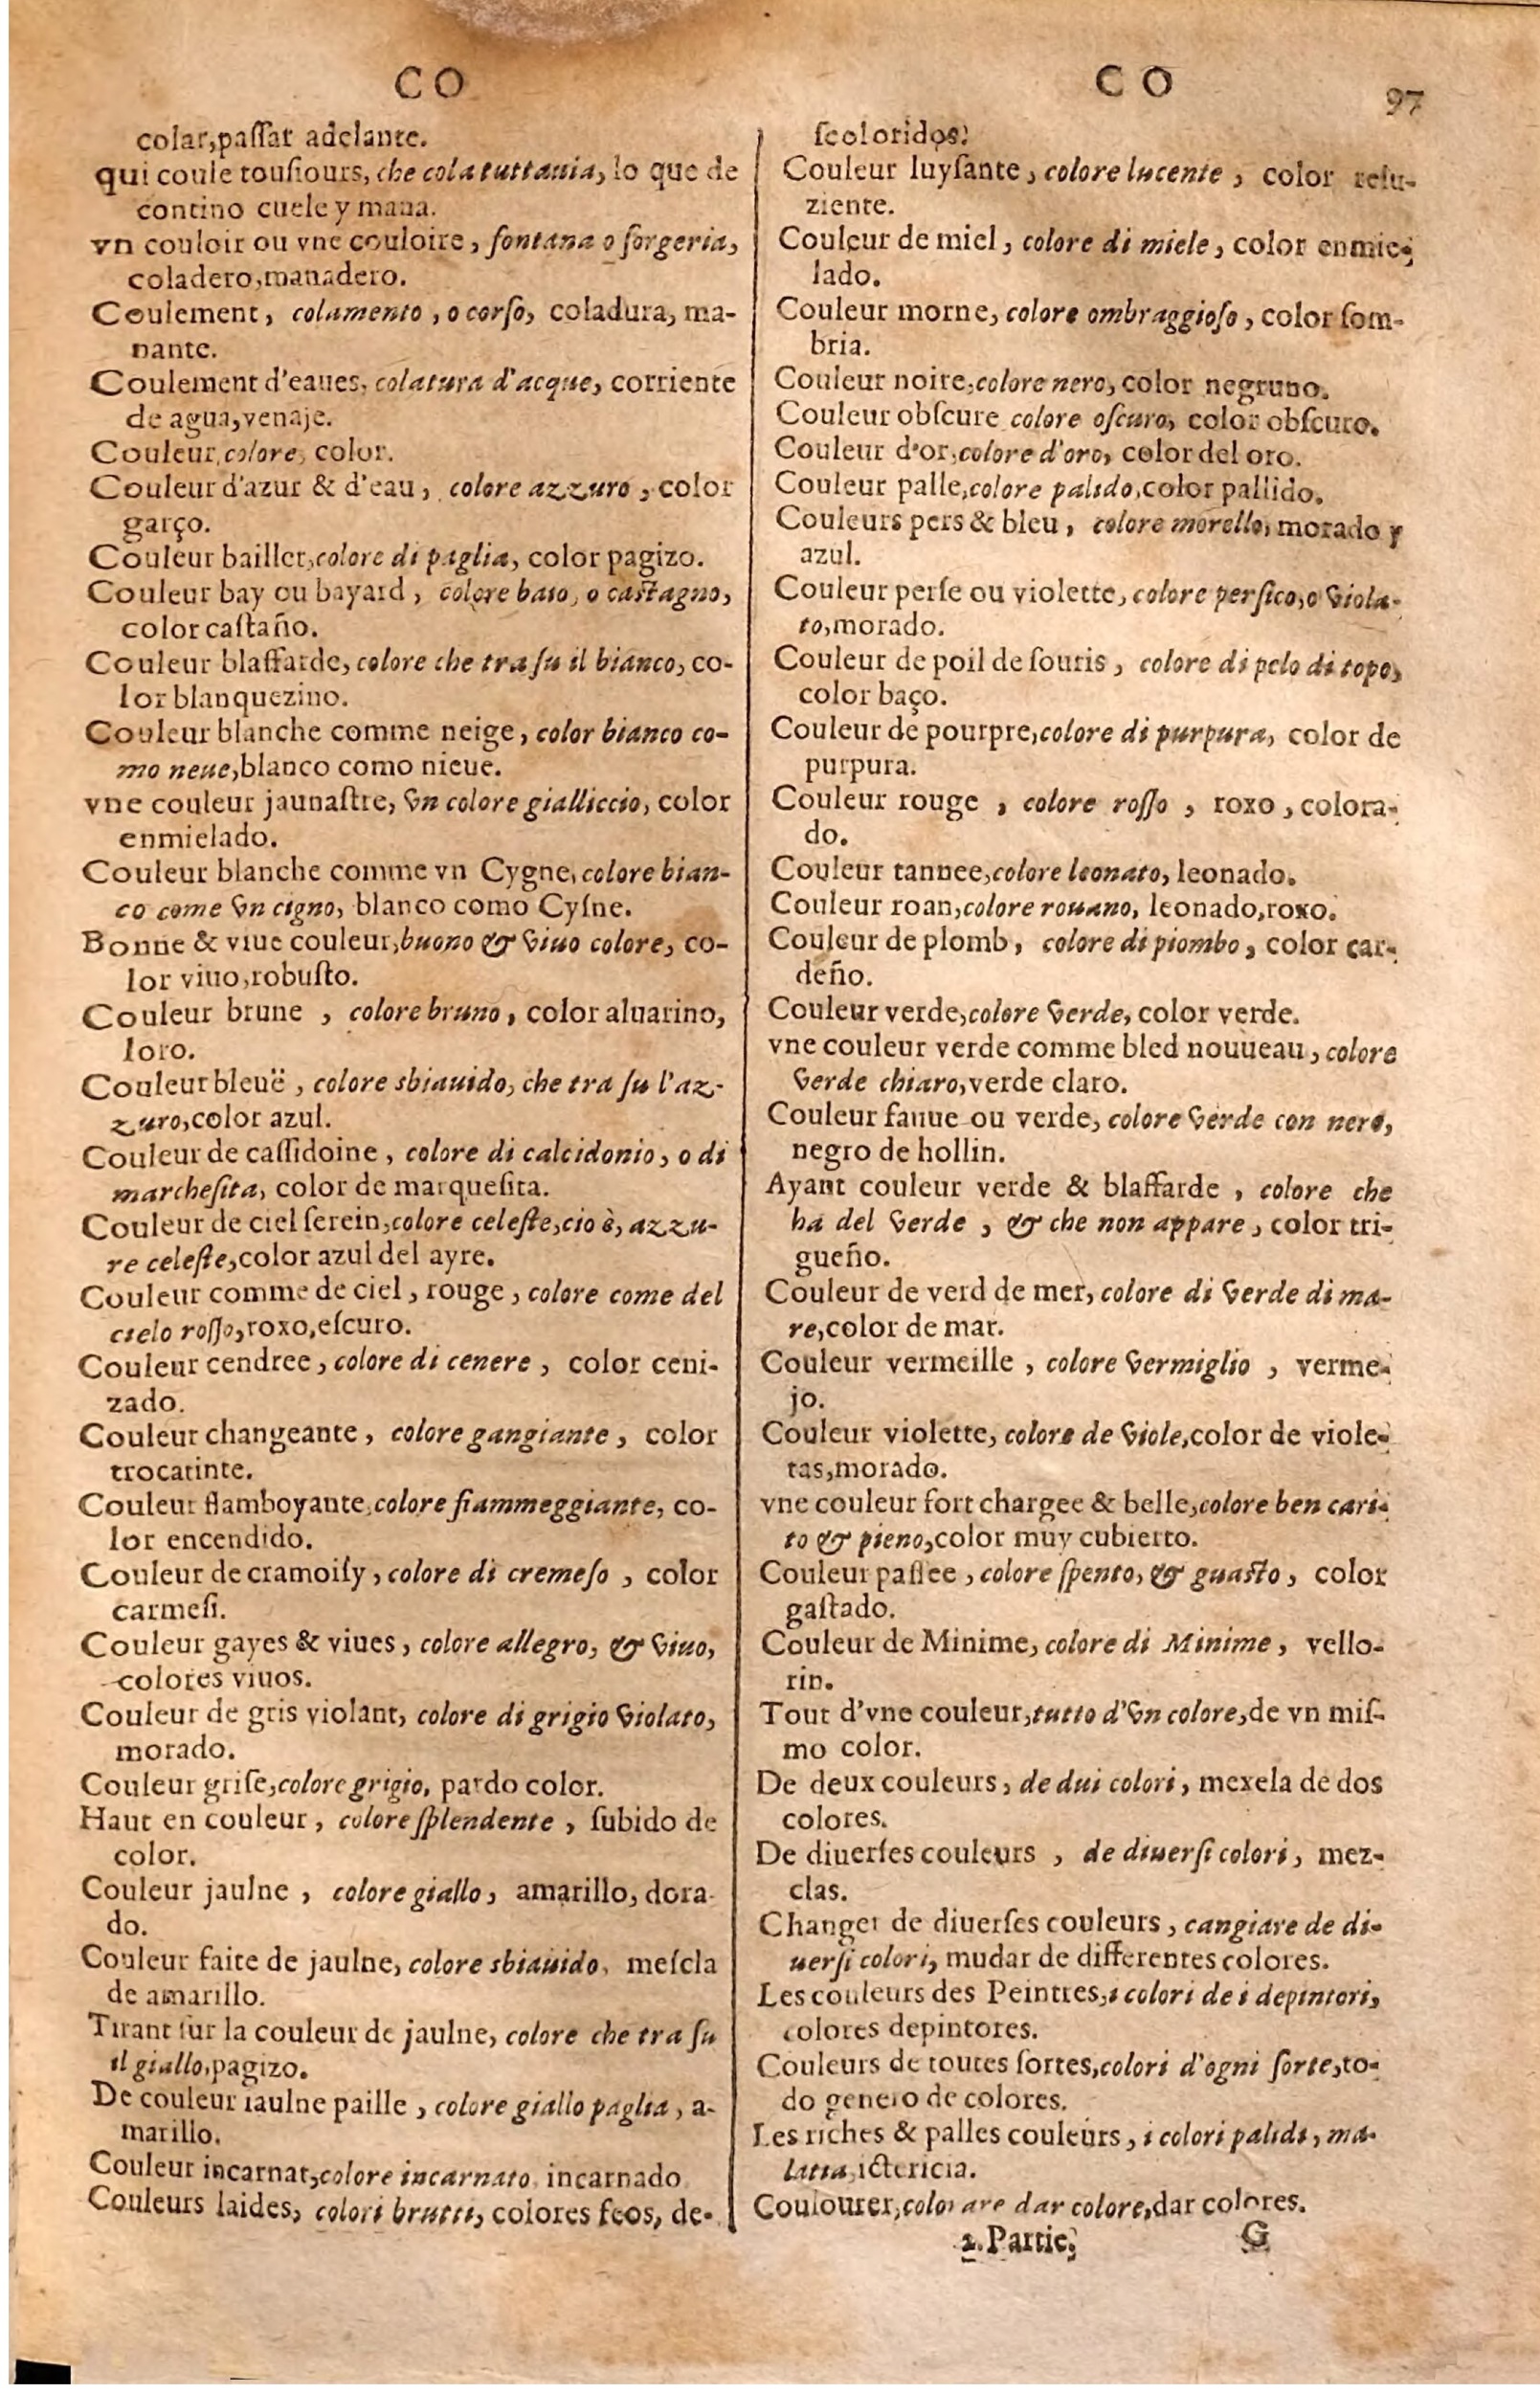 CO
colar,passar adelante.
qui coule tousiours, che cola tuttauia, lo que de
contino cuele y mana.
vn couloir ou vne couloire, fontana o sorgeria,
coladero,manadero.
Coulement, colamento, o corso, coladura, ma-
nante.
Coulement d'eaues, colatura d'acque, corriente
de agua,venaje.
Couleur,colore, color.
Couleur d'azur & d'eau, colore azzuro, color
garço.
Couleur baillet,colore di paglia, color pagizo.
Couleur bay ou bayard, colore baio, o castagno,
color castaño.
Couleur blaffarde, colore che tra su il bianco, co-
lor blanquezino.
Couleur blanche comme neige, color bianco co-
mo neue,blanco como nieue.
vne couleur jaunastre, vn colore gialliccio, color
enmielado.
Couleur blanche comme vn Cygne, colore bian-
co come vn cigno, blanco como Cysne.
Bonne & viue couleur,buono & viuo colore, co-
lor viuo,robusto.
Couleur brune, colore bruno, color aluarino,
loro.
Couleur bleuë, colore sbiauido, che tra su l'az-
zuro,color azul.
Couleur de cassidoine, colore di calcidonio, o di
marchesita, color de marquesita.
Couleur de ciel serein,colore celeste,cio è, azzu-
re celeste,color azul del ayre.
Couleur comme de ciel, rouge, colore come del
cielo rosso,roxo,escuro.
Couleur cendree, colore di cenere, color ceni-
zado.
Couleur changeante, colore gangiante, color
trocatinte.
Couleur flamboyante,colore fiammeggiante, co-
lor encendido.
Couleur de cramoisy, colore di cremeso, color
carmesi.
Couleur gayes & viues, colore allegro, & viuo,
colores viuos.
Couleur de gris violant, colore di grigio violato,
morado.
Couleur grise,colore grigio, pardo color.
Haut en couleur, colore splendente, subido de
color.
Couleur jaulne, colore giallo, amarillo, dora-
do.
Couleur faite de jaulne, colore sbiauido, mescla
de amarillo.
Tirant sur la couleur de jaulne, colore che tra su
il giallo,pagizo.
De couleur iaulne paille, colore giallo paglia, a-
marillo.
Couleur incarnat,colore incarnato, incarnado
Couleurs laides, colori brutti, colores feos, de-
CO 97
scoloridos.
Couleur luysante, colore lucente, color resu-
ziente.
Couleur de miel, colore di miele, color enmie-
lado.
Couleur morne, colore ombraggioso, color som-
bria.
Couleur noire,colore nero, color negruno.
Couleur obscure colore oscuro, color obscuro.
Couleur d'or,colore d'oro, color del oro.
Couleur palle,colore palido,color pallido.
Couleurs pers & bleu, colore morello, morado y
azul.
Couleur perse ou violette, colore persico,o viola-
to,morado.
Couleur de poil de souris, colore di pelo di topo,
color baço.
Couleur de pourpre,colore di purpura, color de
purpura.
Couleur rouge, colore rosso, roxo, colora-
do.
Couleur tannee,colore leonato, leonado.
Couleur roan,colore rouano, leonado,roxo.
Couleur de plomb, colore di piombo, color car-
deño.
Couleur verde,colore verde, color verde.
vne couleur verde comme bled nouueau, colore
verde chiaro,verde claro.
Couleur fauue ou verde, colore verde con nero,
negro de hollin.
Ayant couleur verde & blaffarde, colore che
ha del verde, & che non appare, color tri-
gueño.
Couleur de verd de mer, colore di verde di ma-
re,color de mar.
Couleur vermeille, colore vermiglio, verme-
jo.
Couleur violette, colore de viole,color de viole-
tas,morado.
vne couleur fort chargee & belle,colore ben cari-
to & pieno,color muy cubierto.
Couleur passee, colore spento, & guasto, color
gastado.
Couleur de Minime, colore di Minime, vello-
rin.
Tout d'vne couleur,tutto d'vn colore,de vn mis-
mo color.
De deux couleurs, de dui colori, mexela de dos
colores.
De diuerses couleurs, de diuersi colori, mez-
clas.
Changer de diuerses couleurs, cangiare de di-
uersi colori, mudar de differentes colores.
Les couleurs des Peintres,i colori de i depintori,
colores depintores.
Couleurs de toutes sortes,colori d'ogni sorte,to-
do genero de colores.
Les riches & palles couleurs, i colori palidi, ma-
latia,ictericia.
Coulourer,colorare dar colore,dar colores.
2.Partie, G